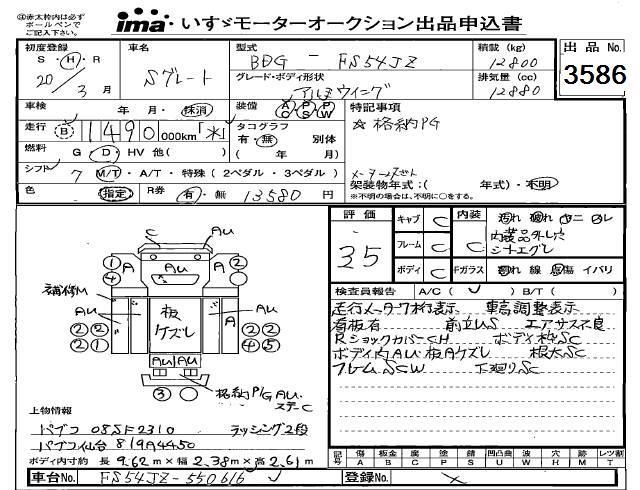 ④赤太枠内は必ず
ボールペンで
ご記入下さい。
ima いすゞモーターオークション出品申込書
初度登録 車名 型式 積載 (kg) 出品 No.
S・H・R Sグレート BDG - FS54JZ 12800
20 / 3 月 グレード・ボディ形状 排気量 (cc) 3586
アルミウイング 12880
車検 年・月・抹消 装備 AC PS PW 特記事項
走行 B 1490 000km「米」 タコグラフ ☆格納PG
有・無 別体
燃料 G・D・HV 他( ) ( 年 月)
シフト 7 M/T・A/T・特殊 (2ペダル・3ペダル) 架装物年式:( 年式)・不明
※不明の場合は、不明に○をする。
色 指定 R券 有・無 13580 円
評価 キャブ C 内装 汚れ
35 フレーム C 内装品外し穴
シートエグレ
ボディ C Fガラス 汚れ 線 傷 イバリ
検査員報告 A/C( ) B/T( )
C AU
① ④ A AU A ②
補修M
AU 板ケズレ A AU
②② ②②
②① ④⑤
AU AU
③ 格納P/G AU
ステーC
走行メータワ桁表示 車高調整表示
看板有 前立US エアサス不良
RショックカバーCH ボディ枠SC
ボディ内AU・板Aケズレ 根太SC
フレームSCW 下廻りSC
上物情報
パブコ 08SF2310 ラッシング2段
パブコ仙台 819A4450
ボディ内寸約 長 9.62m×幅 2.38m×高 2.61m
記号 傷 A 板金 B 腐 C 塗 P 錆 S 凹凸曲 U 波 W 穴 H 跡 M レツ割 T
車台No. FS54JZ-550616 登録No.